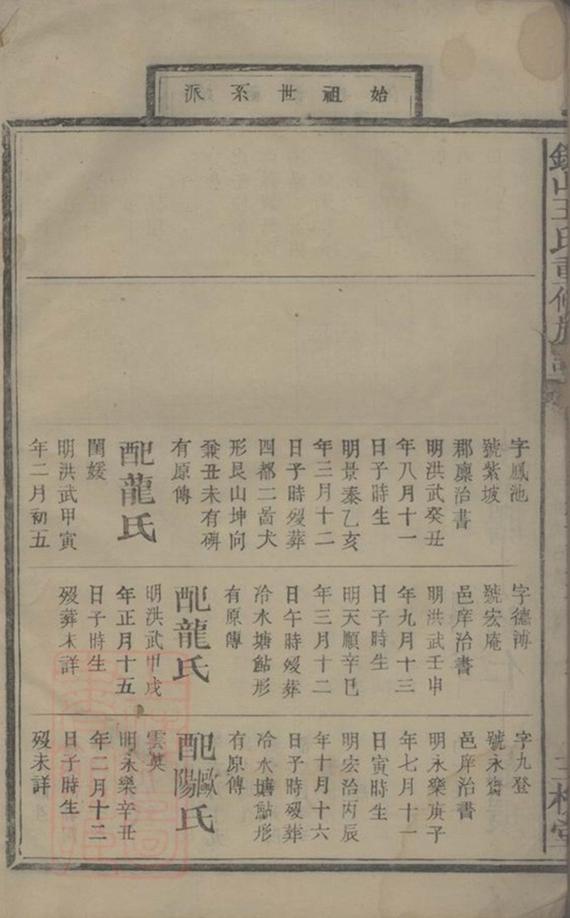 始祖世系派
字鳳池
號紫坡
郡廩治書
明洪武癸丑
年八月十一
日子時生
明景泰乙亥
年三月十二
日子時歿葬
四都二啚犬
形艮山坤向
兼丑未有碑
有原傳
配龍氏
閨媛
明洪武甲寅
年二月初五
字德溥
號宏庵
邑庠治書
明洪武壬申
年九月十三
日子時生
明天順辛巳
年三月十二
日午時歿葬
冷水塘鮎形
有原傳
配龍氏
明洪武甲戌
年正月十五
日子時生
歿葬未詳
字九登
號永齋
邑庠治書
明永樂庚子
年七月十一
日寅時生
明宏治丙辰
年十月十六
日子時歿葬
冷水塘鮎形
有原傳
配歐陽氏
雲英
明永樂辛丑
年二月十二
日子時生
歿未詳
山王氏重修族
三槐堂